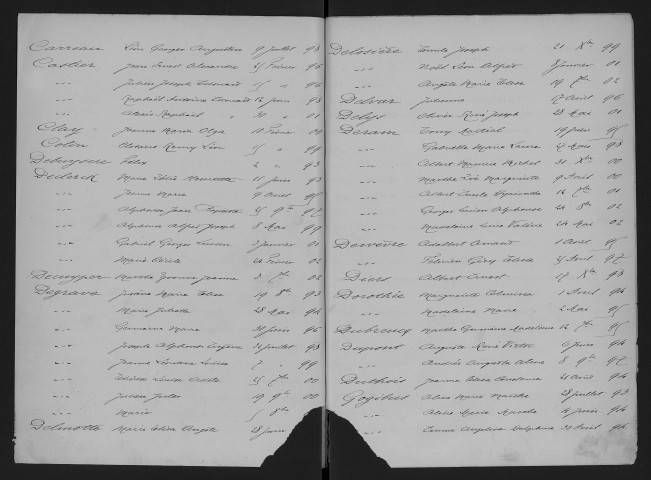 Carreau Léon Georges Augustin 9 Juillet 93
Castier Jean Ernest Alexandre 25 Février 96
-"- Julien Joseph Edouard 25 " 96
-"- Raphaël Antoine Edouard 12 Juin 98
-"- Alexis Raphaël 30 " 01
Clay Jeanne Marie Olga 10 Février 00
Colin Léon 25 " 99
Debuysere Félix 2 " 93
Declerck Marie Henriette 11 Juin 93
-"- Jeanne Marie 9 Août 95
-"- Alphonse Jean 25 9bre 97
-"- Alphonse Alfred Joseph 8 Mai 99
-"- Gabriel Georges Lucien 2 Janvier 01
-"- Marie Cécile 24 Février 02
Decuyper Marthe Yvonne Jeanne 3 7bre 02
Degrave Jérôme Marie 19 8bre 93
-"- Marie Juliette 28 Mai 94
-"- Germaine Marie 30 Juin 96
-"- Joseph Alphonse Eugène 31 Juillet 98
-"- Jeanne Louise 7 " 99
-"- Louise 25 7bre 00
-"- Julien Jules 19 9bre 00
-"- Marie 5 8bre
Delmotte Marie Angèle 28 Juin
Delosière Emile Joseph 21 Xbre 99
-"- Noël Léon Alfred 8 Janvier 01
-"- Angèle Marie Elise 19 7bre 02
Delvar Julienne 17 Août 96
Delys Olivier René Joseph 28 Mai 01
Deram Martial 19 Juin 95
-"- Gabrielle Marie Laure 27 Mai 98
-"- Albert Maurice Michel 31 Xbre 00
-"- Marthe Zoé Marguerite 9 Avril 00
-"- Albert Emile 16 7bre 01
-"- Georges Lucien Alphonse 24 8bre 02
-"- Madeleine Marie Valérie 24 Mai 02
Dewevre Adalbert Amand 1 Août 95
-"- Elise 25 Avril 97
Diers Albert Ernest 17 Xbre 93
Dorothée Marguerite Elmina 1 Avril 94
-"- Madeleine Marie 2 Mai 95
Dubrucq Marthe Germaine Madeleine 16 7bre 95
Dupont Auguste René Victor 6 Juin 94
-"- Amélie Augusta Aline 8 9bre 97
Duthoit Jeanne Elise Constance 21 Août 94
Gogibus Aline Marie Marthe 28 Juillet 93
-"- Alice Marie Marthe 4 Juin 94
-"- Emma Angéline Delphine 30 Août 96